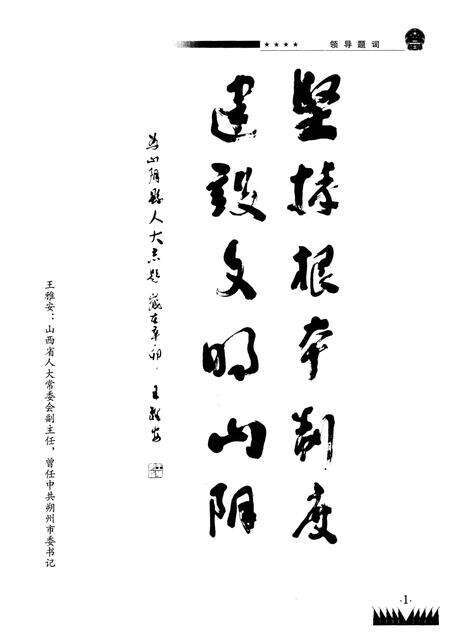 领导题词
坚持根本制度
建设文明山阴
为山阴县人大志题 岁在辛卯 王雅安
王雅安：山西省人大常委会副主任，曾任中共朔州市委书记
·1·